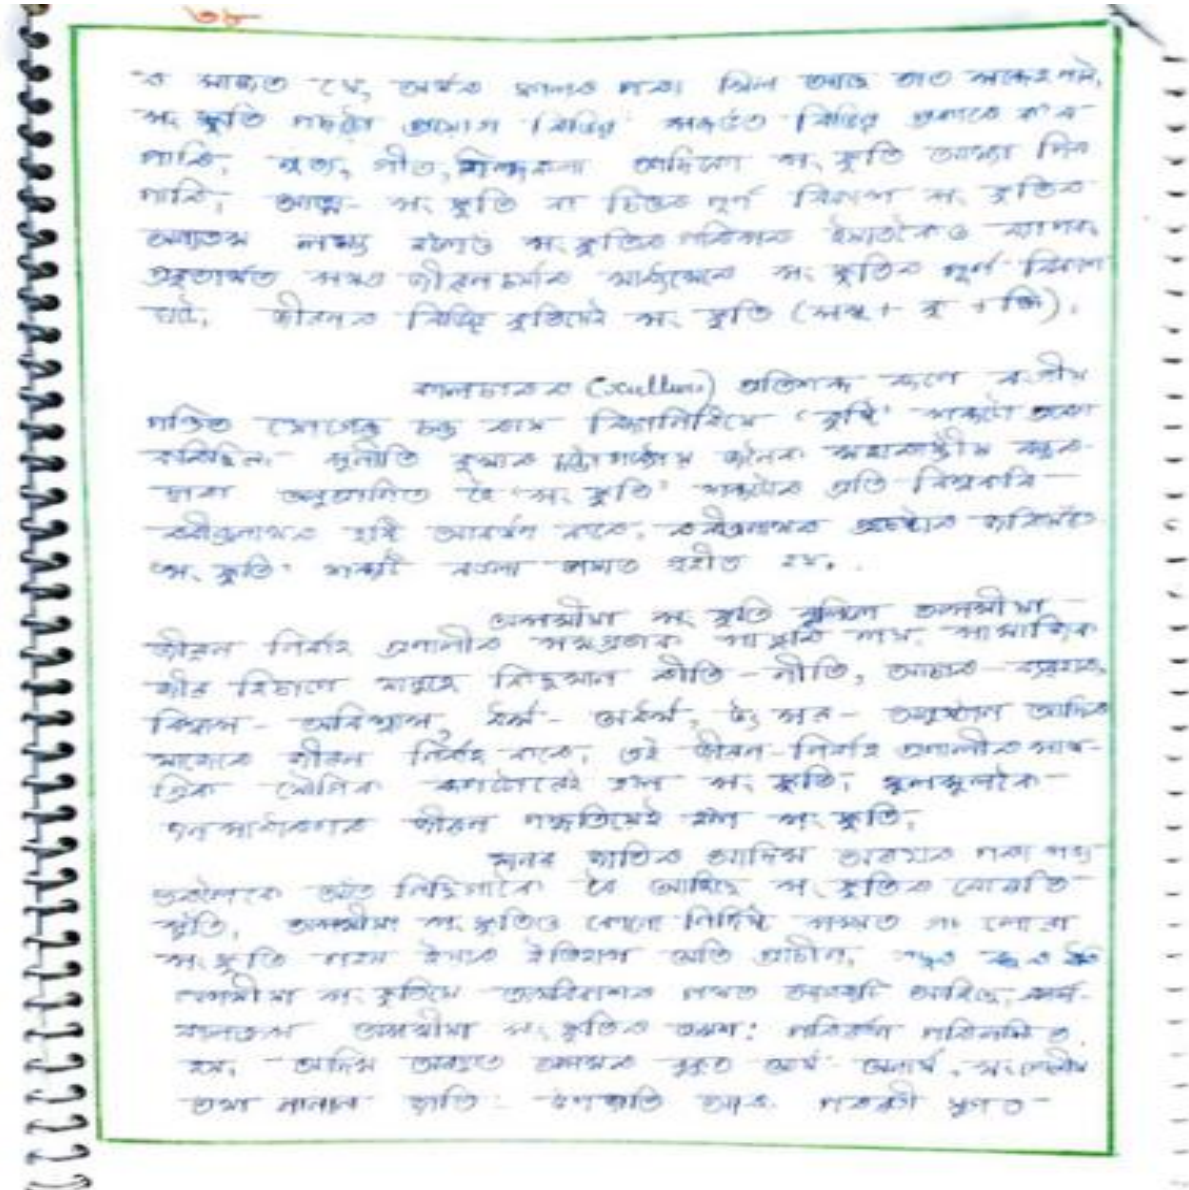 ৩৮
যে, অৰ্থৰ ফালৰ পৰা মিল আছে তাত সন্দেহ নাই,
সংস্কৃতি শব্দটো প্ৰয়োগ বিভিন্ন সন্দৰ্ভত বিভিন্ন প্ৰকাৰে কৰিব
পাৰি, নৃত্য, গীত, শিল্পকলা আদিকো সংস্কৃতি আখ্যা দিব
পাৰি, আত্ম-সংস্কৃতি বা চিত্তৰ পূৰ্ণ বিকাশ সংস্কৃতিৰ
অন্যতম লক্ষ্য হলেও সংস্কৃতিৰ পৰিসৰ ইয়াতকৈও ব্যাপক,
প্ৰকৃতাৰ্থত সমগ্ৰ জীৱনচৰ্যাৰ মাধ্যমেৰে সংস্কৃতিৰ পূৰ্ণ বিকাশ
ঘটে, জীৱনৰ বিশিষ্ট কৃতিয়েই সংস্কৃতি (সম্ + কৃ + ক্তি),
কালচাৰৰ (Culture) প্ৰতিশব্দ ৰূপে বংগীয়
পণ্ডিত যোগেশ চন্দ্ৰ ৰায় বিদ্যানিধিয়ে 'কৃষ্টি' শব্দটো
কৰিছিল, সুনীতি কুমাৰ চট্টোপাধ্যায় জনৈক মহাৰাষ্ট্ৰীয় বন্ধুৰ
দ্বাৰা অনুপ্ৰাণিত হৈ 'সংস্কৃতি' শব্দটোৰ প্ৰতি বিশ্বকবি
ৰবীন্দ্ৰনাথৰ দৃষ্টি আকৰ্ষণ কৰে, ৰবীন্দ্ৰনাথৰ প্ৰচেষ্টাৰ
'সংস্কৃতি' শব্দটো বঙলা ভাষাত গৃহীত হয়,
অসমীয়া সংস্কৃতি বুলিলে অসমীয়া
জীৱন নিৰ্বাহ প্ৰণালীৰ নাম, সামাজিক
জীৱ হিচাপে মানুহে বিদ্যমান ৰীতি-নীতি, আচাৰ-ব্যৱহাৰ,
বিশ্বাস-অবিশ্বাস, ধৰ্ম-অধৰ্ম, উৎসৱ-অনুষ্ঠান আদিৰ
মাজেৰে জীৱন নিৰ্বাহ কৰে, এই জীৱন-নিৰ্বাহ প্ৰণালীৰ
যৌগিক ৰূপটোৱেই হ'ল সংস্কৃতি, মূলকথাটোকৈ
জনসাধাৰণৰ জীৱন পদ্ধতিয়েই হ'ল সংস্কৃতি,
মানৱ জাতিৰ আদিম অৱস্থাৰ পৰা
বৈ আহিছে সংস্কৃতিৰ বোৱতী
সুঁতি, অসমীয়া সংস্কৃতিও কোনো নিৰ্দিষ্ট সময়ত গঢ় লোৱা
সংস্কৃতি নহয় ইয়াৰ ইতিহাস অতি প্ৰাচীন,
অসমীয়া সংস্কৃতিয়ে ক্ৰমবিকাশৰ পথত আগবাঢ়ি আহিছে,
কালক্ৰমে অসমীয়া সংস্কৃতিৰ ক্ৰমশঃ পৰিবৰ্তন পৰিলক্ষিত
হয়, আদিম অৱস্থাত অসমৰ বুকুত আৰ্য-অনাৰ্য, মংগোলীয়
তথা নানান জাতি-উপজাতি আৰু পৰৱৰ্তী যুগত